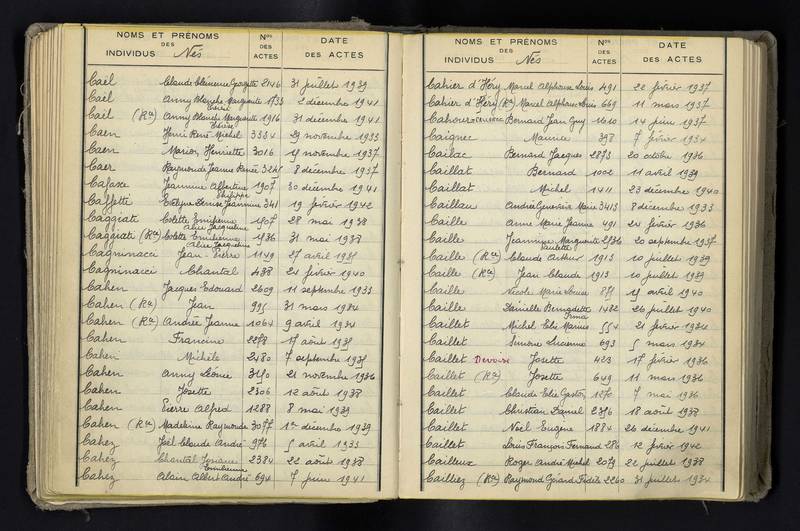 NOMS ET PRÉNOMS DES INDIVIDUS Nés
Nos DES ACTES
DATE DES ACTES
Cail Claude Clémence Georgette 2146 31 juillet 1939
Cail Anny Blanche Marguerite 1733 2 décembre 1941
Cail (Ron) Anny Blanche Marguerite 1916 31 décembre 1941
Caen Henri René Michel 3384 29 novembre 1933
Caen Marion Henriette 3016 15 novembre 1937
Caer Raymonde Jeanne Renée 3245 8 décembre 1937
Cafaxe Jeannine Albertine 1907 30 décembre 1941
Caffetti Evelyne Denise Jeannine 341 19 février 1942
Caggiati Colette Emilienne Alice Jacqueline 1507 28 mai 1938
Caggiati (Ron) Colette Emilienne Alice Jacqueline 1536 31 mai 1938
Cagninacci Jean Pierre 1149 27 avril 1935
Cagninacci Chantal 438 21 février 1940
Cahen Jacques Edouard 2609 11 septembre 1933
Cahen (Ron) Jean 995 31 mars 1934
Cahen (Ron) Andrée Jeanne 1064 9 avril 1934
Cahen Francine 17 août 1935
Cahen Michèle 2480 7 septembre 1935
Cahen Anny Léonie 21 novembre 1936
Cahen Josette 2306 12 août 1938
Cahen Pierre Alfred 1288 8 mai 1939
Cahen (Ron) Madeleine Raymonde 3077 1er décembre 1939
Cahez Joël Claude André 976 5 avril 1933
Cahez Chantal Josiane Emilienne 2384 22 août 1938
Cahez Alain Albert André 694 7 juin 1941
NOMS ET PRÉNOMS DES INDIVIDUS Nés
Nos DES ACTES
DATE DES ACTES
Cahier d'Héry Marcel Alphonse Louis 491 22 février 1937
Cahier d'Héry (Ron) Marcel Alphonse Louis 669 11 mars 1937
Cahour Bernard Jean Guy 1610 14 juin 1937
Caignec Maurice 398 7 février 1934
Cailac Bernard Jacques 2873 20 octobre 1936
Caillat Bernard 1002 11 avril 1939
Caillat Michel 1411 23 décembre 1940
Caillau Andrée Geneviève Marie 3413 8 décembre 1933
Caille Anne Marie Jeanne 491 24 février 1936
Caille Jeannine Marguerite Paulette 2536 20 septembre 1937
Caille (Ron) Claude Arthur 1913 10 juillet 1939
Caille (Ron) Jean Claude 1913 10 juillet 1939
Caille Nicole Marie Louise 871 15 avril 1940
Caille Danielle Bernadette Irma 1482 26 juillet 1940
Caillet Michel Elie Marius 554 21 février 1934
Caillet Simone Lucienne 693 5 mars 1934
Caillet Devouse Josette 423 17 février 1936
Caillet (Ron) Josette 649 11 mars 1936
Caillet Claude Elie Gaston 1270 7 mai 1936
Caillet Christian Daniel 2356 18 août 1938
Caillet Noël Eugène 1884 26 décembre 1941
Caillet Louis François Fernand 286 12 février 1942
Cailleux Roger André Michel 2079 22 juillet 1938
Cailliez (Ron) Raymond Gérard Fidèle 2260 31 juillet 1934